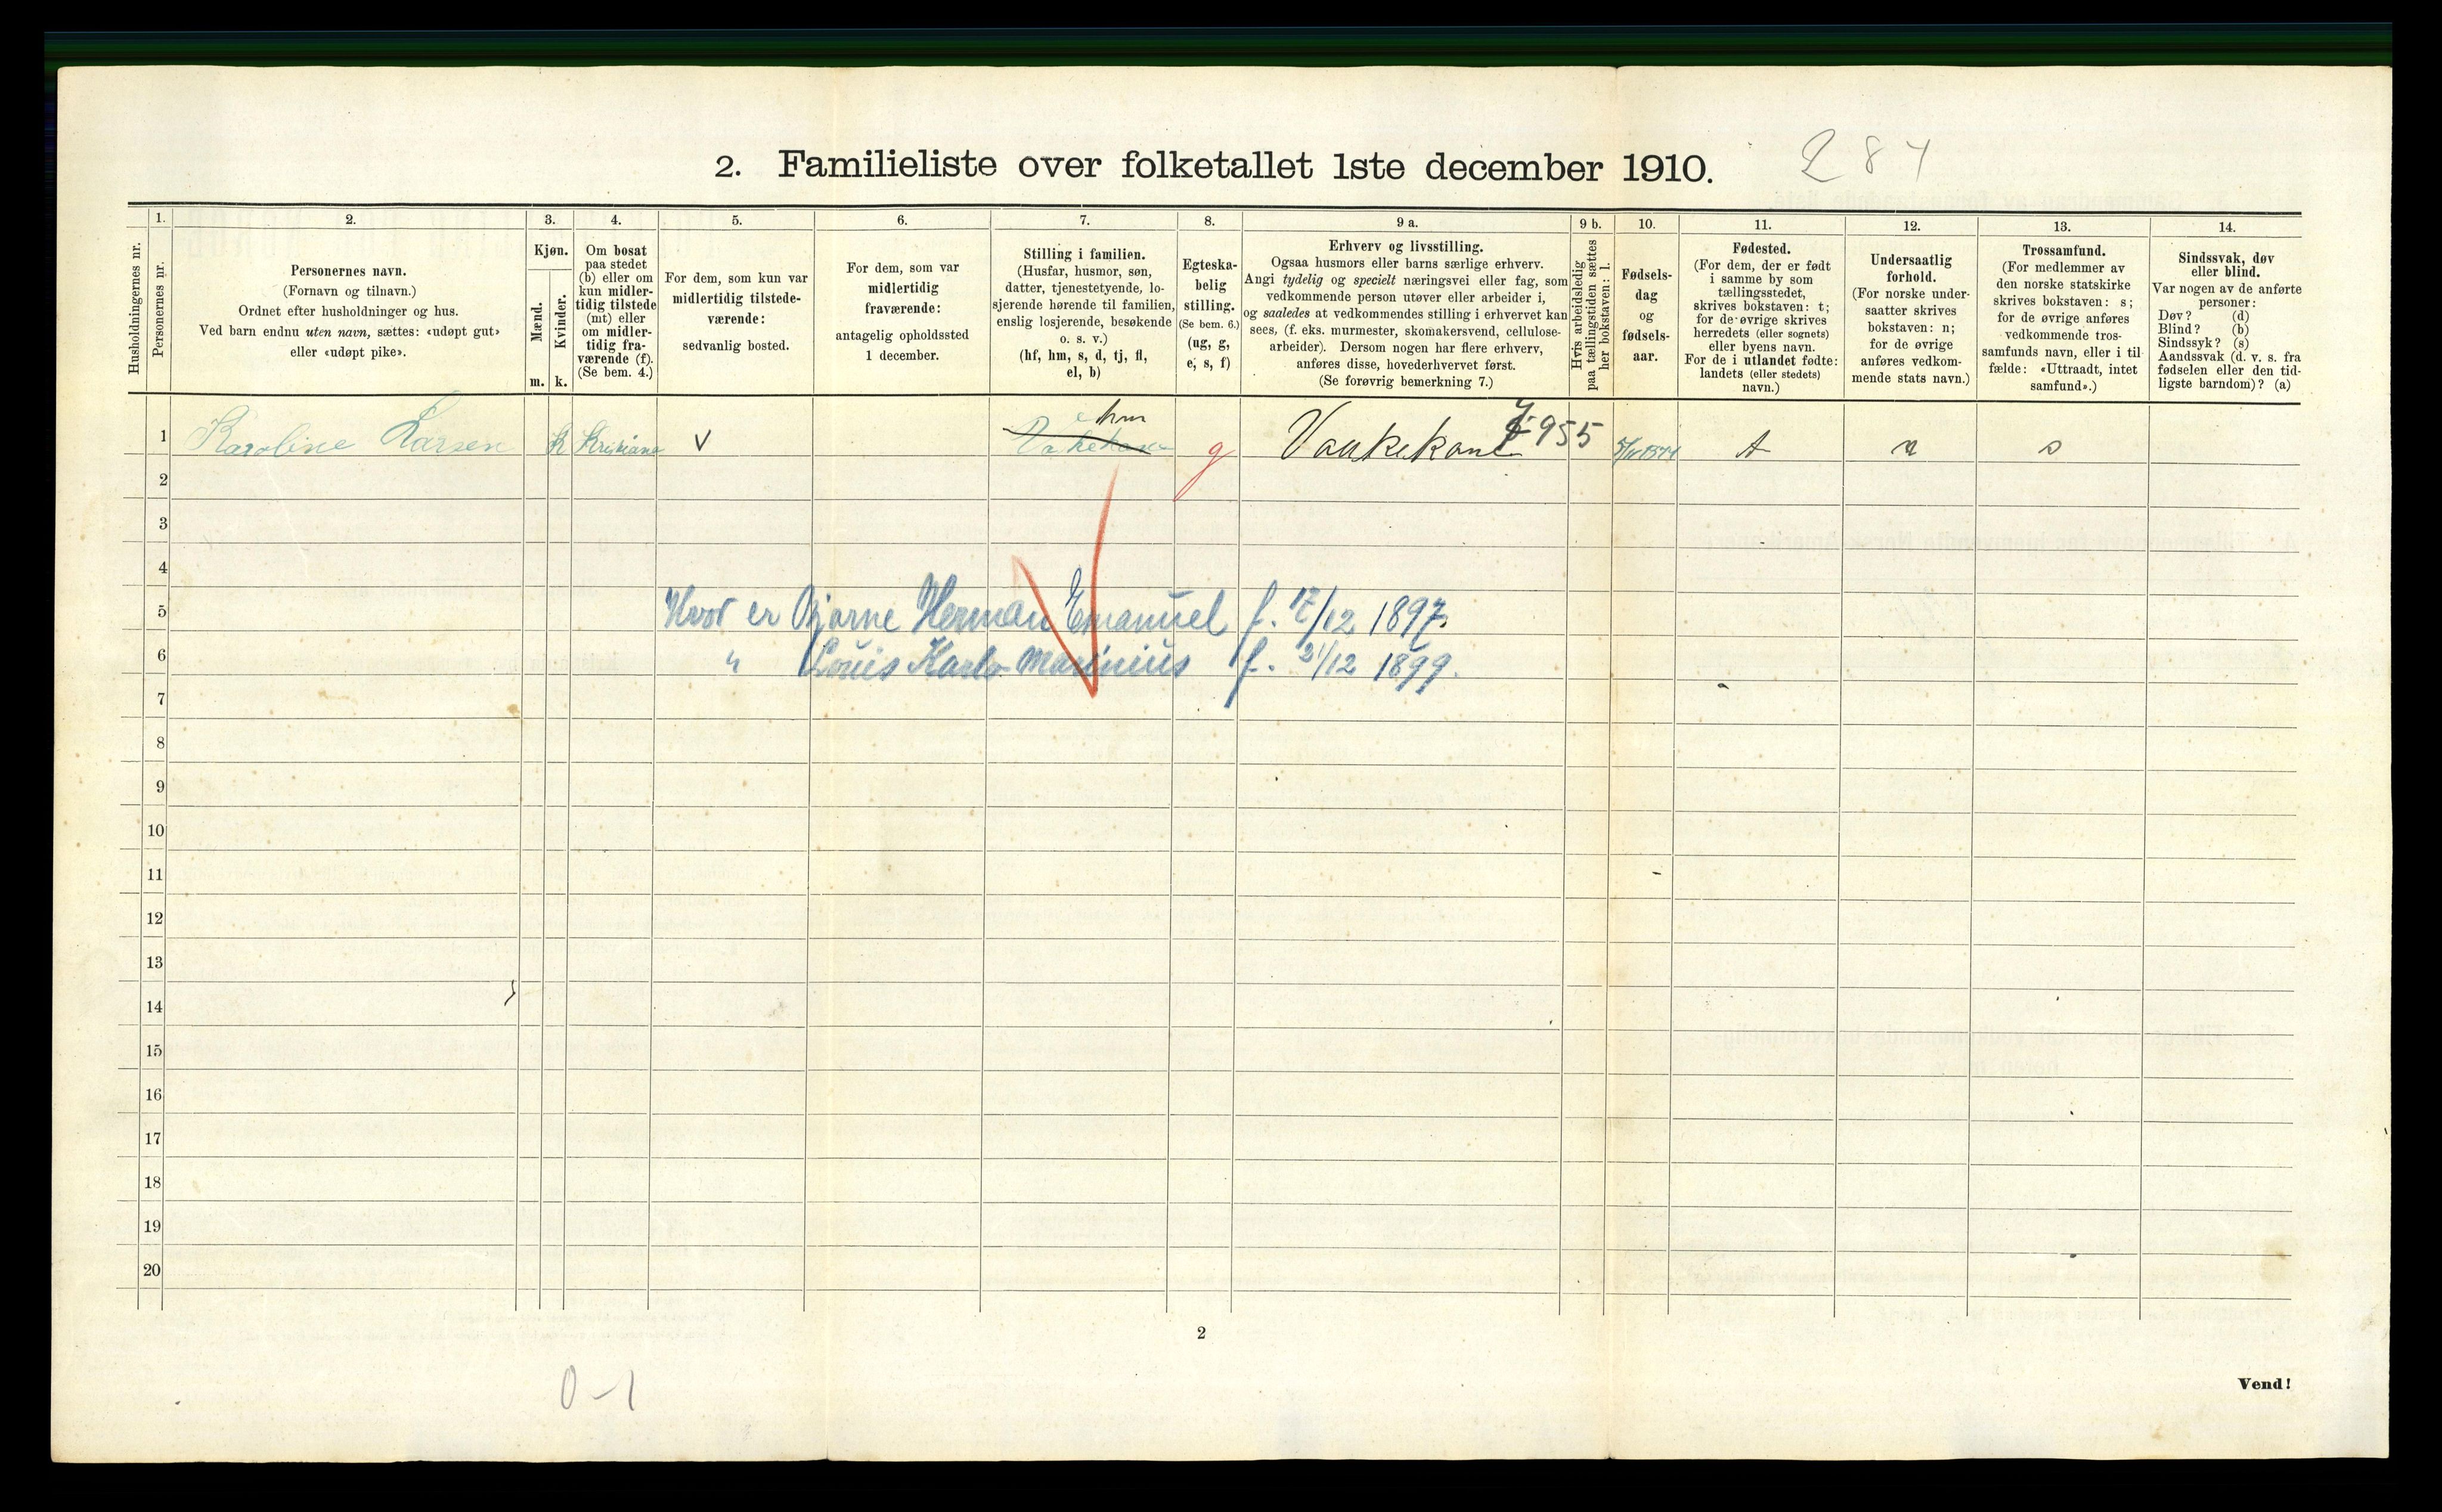 2. Familieliste over folketallet 1ste december 1910.
287
Husholdningernes nr.
1.
Personernes nr.
2.
Personernes navn.
(Fornavn og tilnavn.)
Ordnet efter husholdninger og hus.
Ved barn endnu uten navn, sættes: «udøpt gut»
eller «udøpt pike».
3.
Kjøn.
Mænd.
Kvinder.
m. k.
4.
Om bosat
paa stedet
(b) eller om
kun midler-
tidig tilstede
(mt) eller
om midler-
tidig fra-
værende (f).
(Se bem. 4.)
5.
For dem, som kun var
midlertidig tilstede-
værende:
sedvanlig bosted.
6.
For dem, som var
midlertidig
fraværende:
antagelig opholdssted
1 december.
7.
Stilling i familien.
(Husfar, husmor, søn,
datter, tjenestetyende, lo-
sjerende hørende til familien,
enslig losjerende, besøkende
o. s. v.)
(hf, hm, s, d, tj, fl,
el, b)
8.
Egteska-
belig
stilling.
(Se bem. 6.)
(ug, g,
e, s, f)
9 a.
Erhverv og livsstilling.
Ogsaa husmors eller barns særlige erhverv.
Angi tydelig og specielt næringsvei eller fag, som
vedkommende person utøver eller arbeider i,
og saaledes at vedkommendes stilling i erhvervet kan
sees, (f. eks. murmester, skomakersvend, cellulose-
arbeider). Dersom nogen har flere erhverv,
anføres disse, hovederhvervet først.
(Se forøvrig bemerkning 7.)
9 b.
Hvis arbeidsledig
paa tællingstiden sættes
her bokstaven: l.
10.
Fødsels-
dag
og
fødsels-
aar.
11.
Fødested.
(For dem, der er født
i samme by som
tællingsstedet,
skrives bokstaven: t;
for de øvrige skrives
herredets (eller sognets)
eller byens navn.
For de i utlandet fødte:
landets (eller stedets)
navn.)
12.
Undersaatlig
forhold.
(For norske under-
saatter skrives
bokstaven: n;
for de øvrige
anføres vedkom-
mende stats navn.)
13.
Trossamfund.
(For medlemmer av
den norske statskirke
skrives bokstaven: s;
for de øvrige anføres
vedkommende tros-
samfunds navn, eller i til-
fælde: «Uttraadt, intet
samfund».)
14.
Sindssvak, døv
eller blind.
Var nogen av de anførte
personer:
Døv? (d)
Blind? (b)
Sindssyk? (s)
Aandssvak (d. v. s. fra
fødselen eller den tid-
ligste barndom)? (a)
1 Karoline Larsen K Kristiania V hm g Vaskekone 7-955 t n s
2
3
4
5 Hvor er Bjarne Herman Emanuel f. 17/12 1897.
6 " Louis Karlo Marinius f. 21/12 1899.
7
8
9
10
11
12
13
14
15
16
17
18
19
20
2
0-1
Vend!